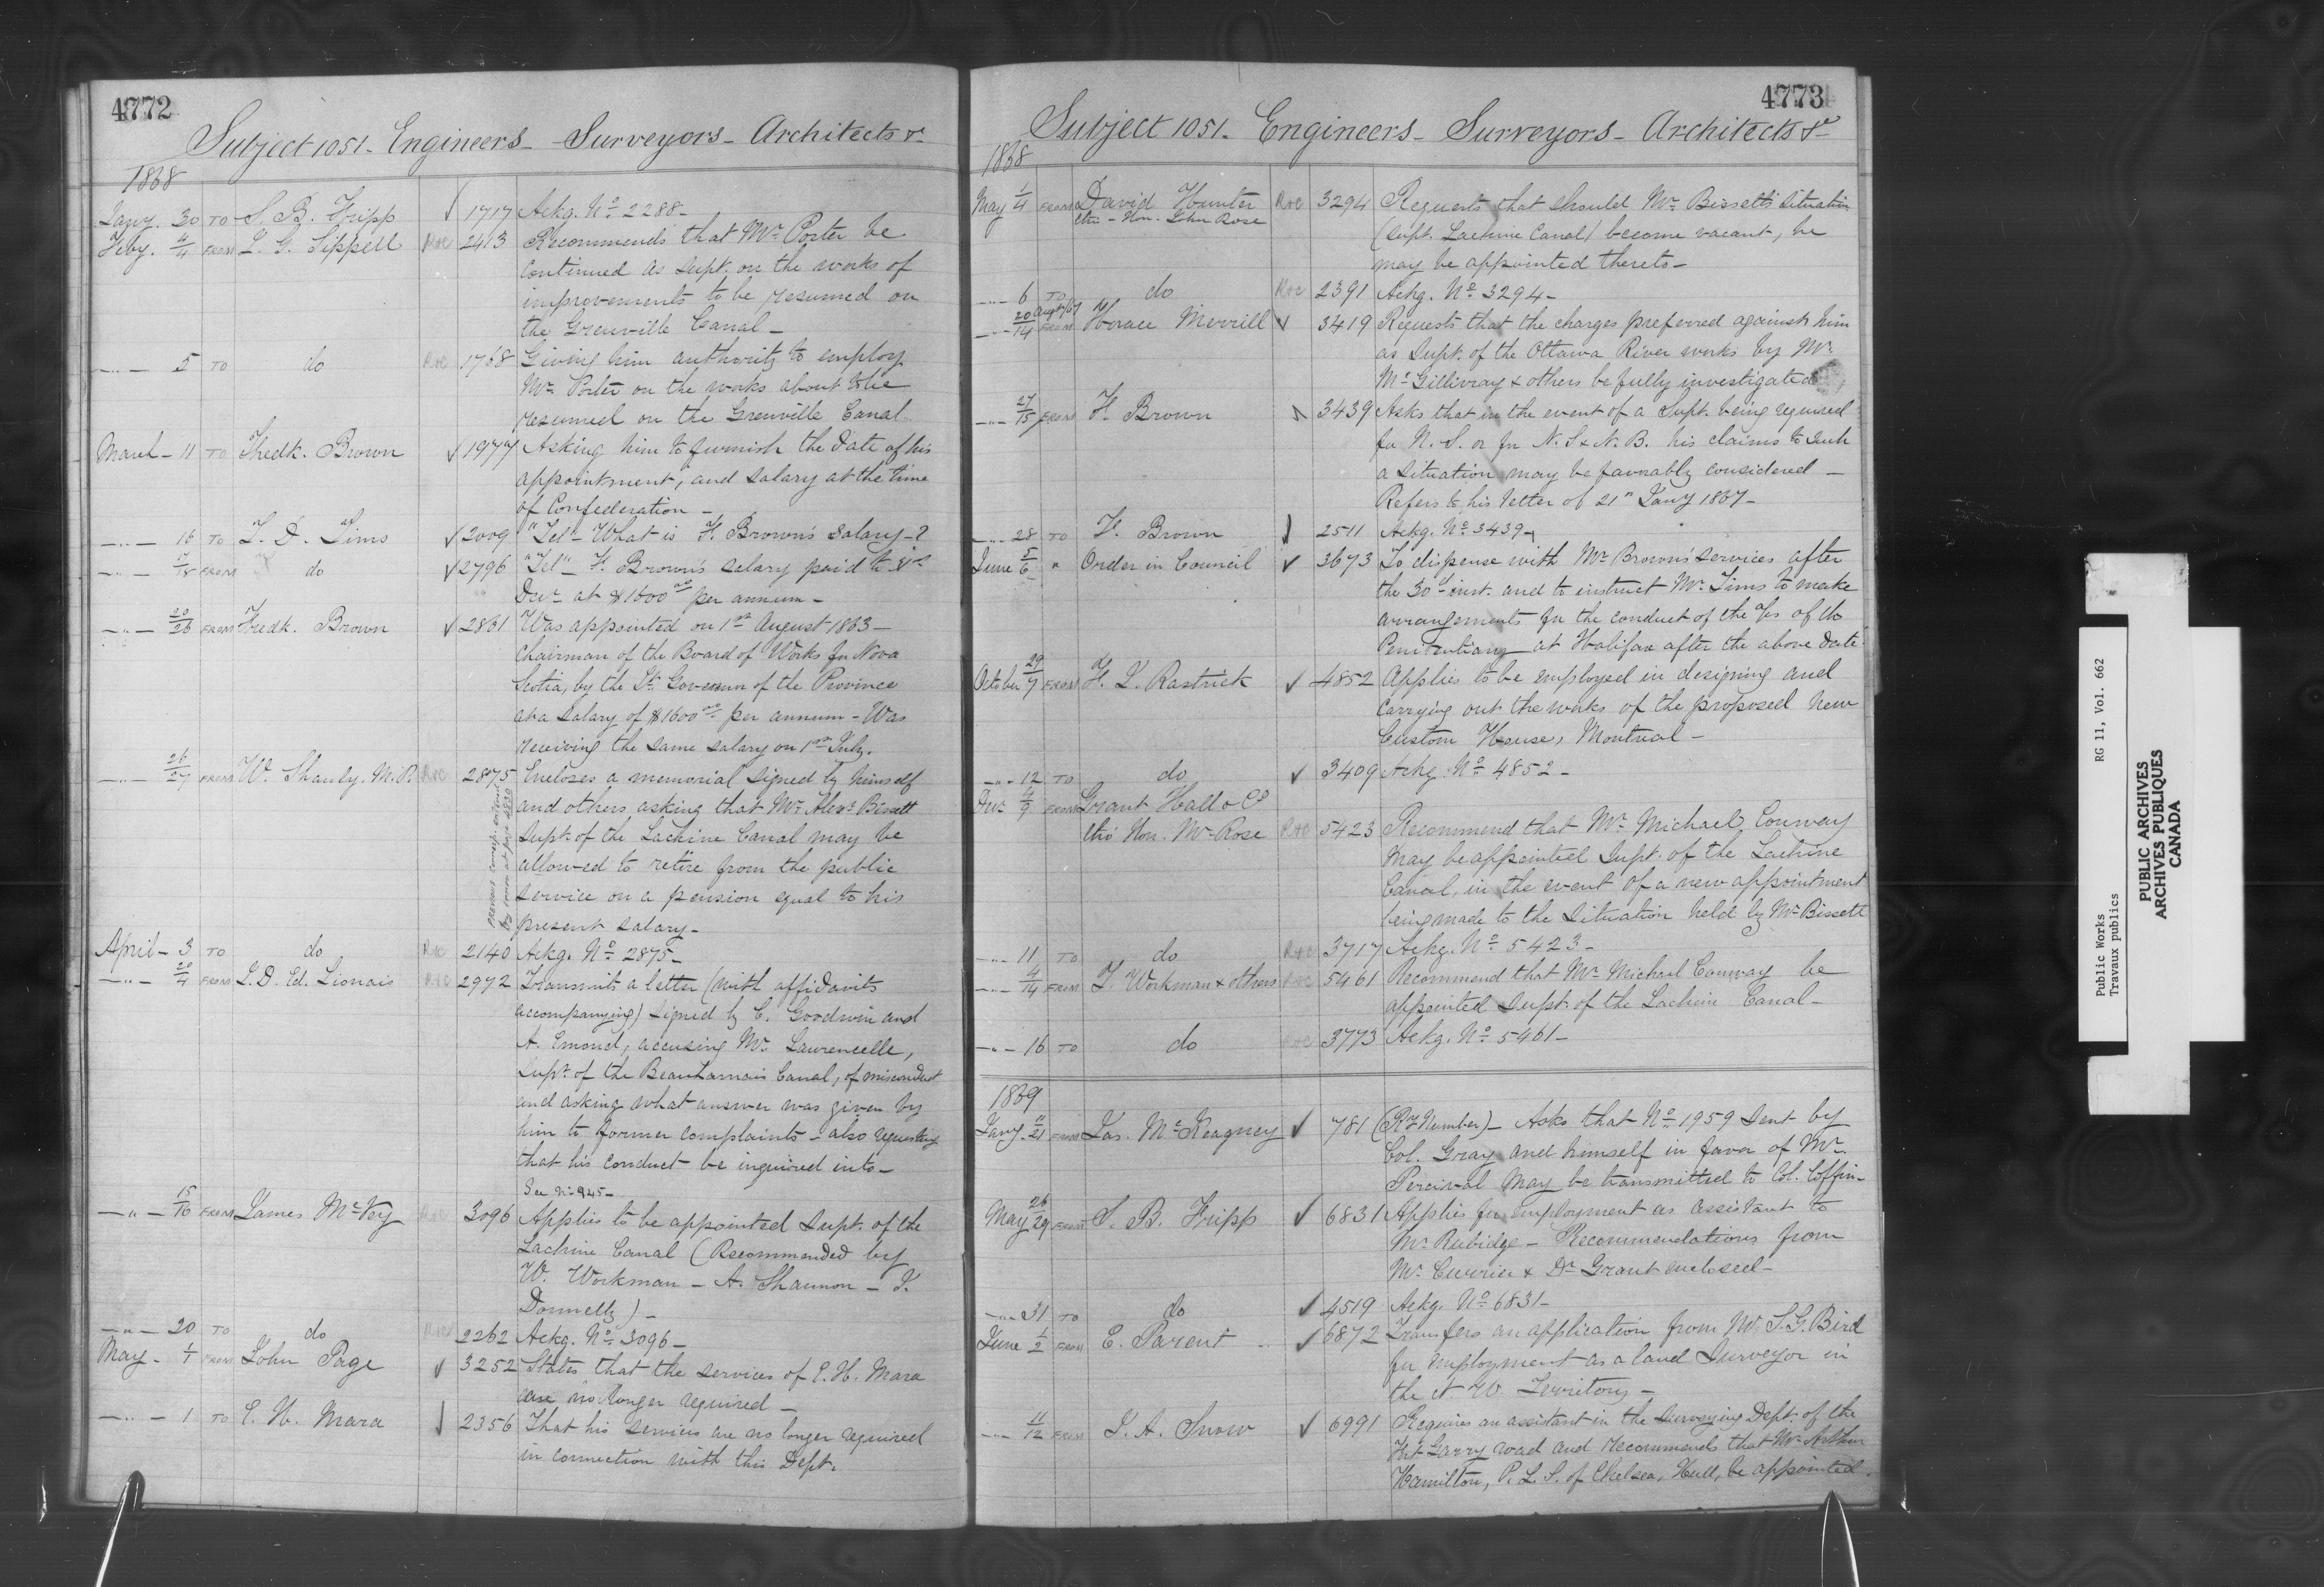 4772
Subject 1051 - Engineers - Surveyors - Architects &c
1868
Jany. 30 TO S. B. Fripp ✓ 1717 Ackg. No 2288 -
Feby. 4/4 FROM T. G. Sippell R&C 2413 Recommends that Mr Porter be
continued as Supt. on the works of
improvements to be resumed on
the Grenville Canal -
-"- 5 TO do R&C 1768 Giving him authority to employ
Mr Porter on the works about to be
resumed on the Grenville Canal
March - 11 TO Fredk. Brown ✓ 1977 Asking him to furnish the date of his
appointment, and salary at the time
of Confederation -
-"- 16 TO T. D. Tims ✓ 2009 "Tel" - What is F. Brown's salary - ?
-"- 17/18 FROM do ✓ 2796 "Tel" - F. Brown's salary paid to
at $1600 per annum -
-"- 20/26 FROM Fredk. Brown ✓ 2861 Was appointed on 1st August 1863 -
Chairman of the Board of Works for Nova
Scotia, by the Lt. Governor of the Province
at a salary of $1600 per annum - Was
receiving the same salary on 1st July.
-"- 26/27 FROM W. Shanly. M.P. R&C 2875 Encloses a memorial signed by himself
and others asking that Mr Alexr Bissett
Supt. of the Lachine Canal may be
allowed to retire from the public
service on a pension equal to his
present salary -
previous corresp. entered
by error at page 4830
April - 3 TO do R&C 2140 Ackg. No 2875 -
-"- 20/4 FROM L. D. Ed. Lionais R&C 2972 Transmits a letter (with affidavits
accompanying) signed by C. Goodwin and
A. Emond, accusing Mr Laurencelle,
Supt. of the Beauharnois Canal, of misconduct
and asking what answer was given by
him to former complaints - also requesting
that his conduct be inquired into -
See No 945 -
-"- 15/16 FROM James McVey R&C 3096 Applies to be appointed Supt. of the
Lachine Canal (Recommended by
W. Workman - A. Shannon - J.
Donnelly) -
-"- 20 TO do R&C 2262 Ackg. No 3096 -
May - 1/1 FROM John Page ✓ 3252 States that the services of C. H. Mara
are no longer required -
-"- 1 TO C. H. Mara ✓ 2356 That his services are no longer required
in connection with this Dept.
4773
Subject 1051 - Engineers - Surveyors - Architects &c
1868
May 1/4 FROM David Hunter R&C 3294 Requests that should Mr Bissett's situation
thro - Hon. John Rose (Supt. Lachine Canal) become vacant, he
may be appointed thereto -
-"- 6 TO do R&C 2391 Ackg. No 3294 -
-"- 20 Augt/67 / 14 FROM Horace Merrill ✓ 3419 Requests that the charges preferred against him
as Supt. of the Ottawa River works by Mr
McGillivray & others be fully investigated
-"- 27/15 FROM F. Brown ✓ 3439 Asks that in the event of a Supt. being required
for N. S. or for N. S. & N. B. his claims to such
a situation may be favorably considered -
Refers to his letter of 21st Jany 1867 -
-"- 28 TO F. Brown ✓ 2511 Ackg. No 3439 -
June 5/6 " Order in Council ✓ 3673 To dispense with Mr Brown's services after
the 30th inst. and to instruct Mr Tims to make
arrangements for the conduct of the of the
Penitentiary at Halifax after the above date.
October 29/7 FROM H. J. Rastrick ✓ 4852 Applies to be employed in designing and
carrying out the works of the proposed new
Custom House, Montreal -
-"- 12 TO do ✓ 3409 Ackg. No 4852 -
Decr 4/9 FROM Grant Hall & Co
thro Hon. Mr Rose R&C 5423 Recommend that Mr Michael Conway
may be appointed Supt. of the Lachine
Canal, in the event of a new appointment
being made to the situation held by Mr Bissett
-"- 11 TO do R&C 3717 Ackg. No 5423 -
-"- 4/14 FROM T. Workman & others R&C 5461 Recommend that Mr Michael Conway be
appointed Supt. of the Lachine Canal -
-"- 16 TO do R&C 3773 Ackg. No 5461 -
1869
Jany. 11/21 FROM Jas. McKeagney ✓ 781 (Rf Number) - Asks that No 1959 sent by
Col. Gray and himself in favor of Mr
Percival may be transmitted to Col. Coffin -
May 26/29 FROM S. B. Fripp ✓ 6831 Applies for employment as assistant to
Mr Rubidge - Recommendations from
Mr Currier & Dr Grant enclosed -
-"- 31 TO do ✓ 4519 Ackg. No 6831 -
June 1/2 FROM E. Parent ✓ 6872 Transfers an application from Mr S. G. Bird
for employment as a land Surveyor in
the N. W. Territory -
-"- 11/12 FROM J. A. Snow ✓ 6991 Requires an assistant in the Surveying Dept. of the
Fort Garry road and recommends that Mr Arthur
Hamilton, P. L. S. of Chelsea, Hull, be appointed.
Public Works RG 11, Vol. 662
Travaux publics
PUBLIC ARCHIVES
ARCHIVES PUBLIQUES
CANADA